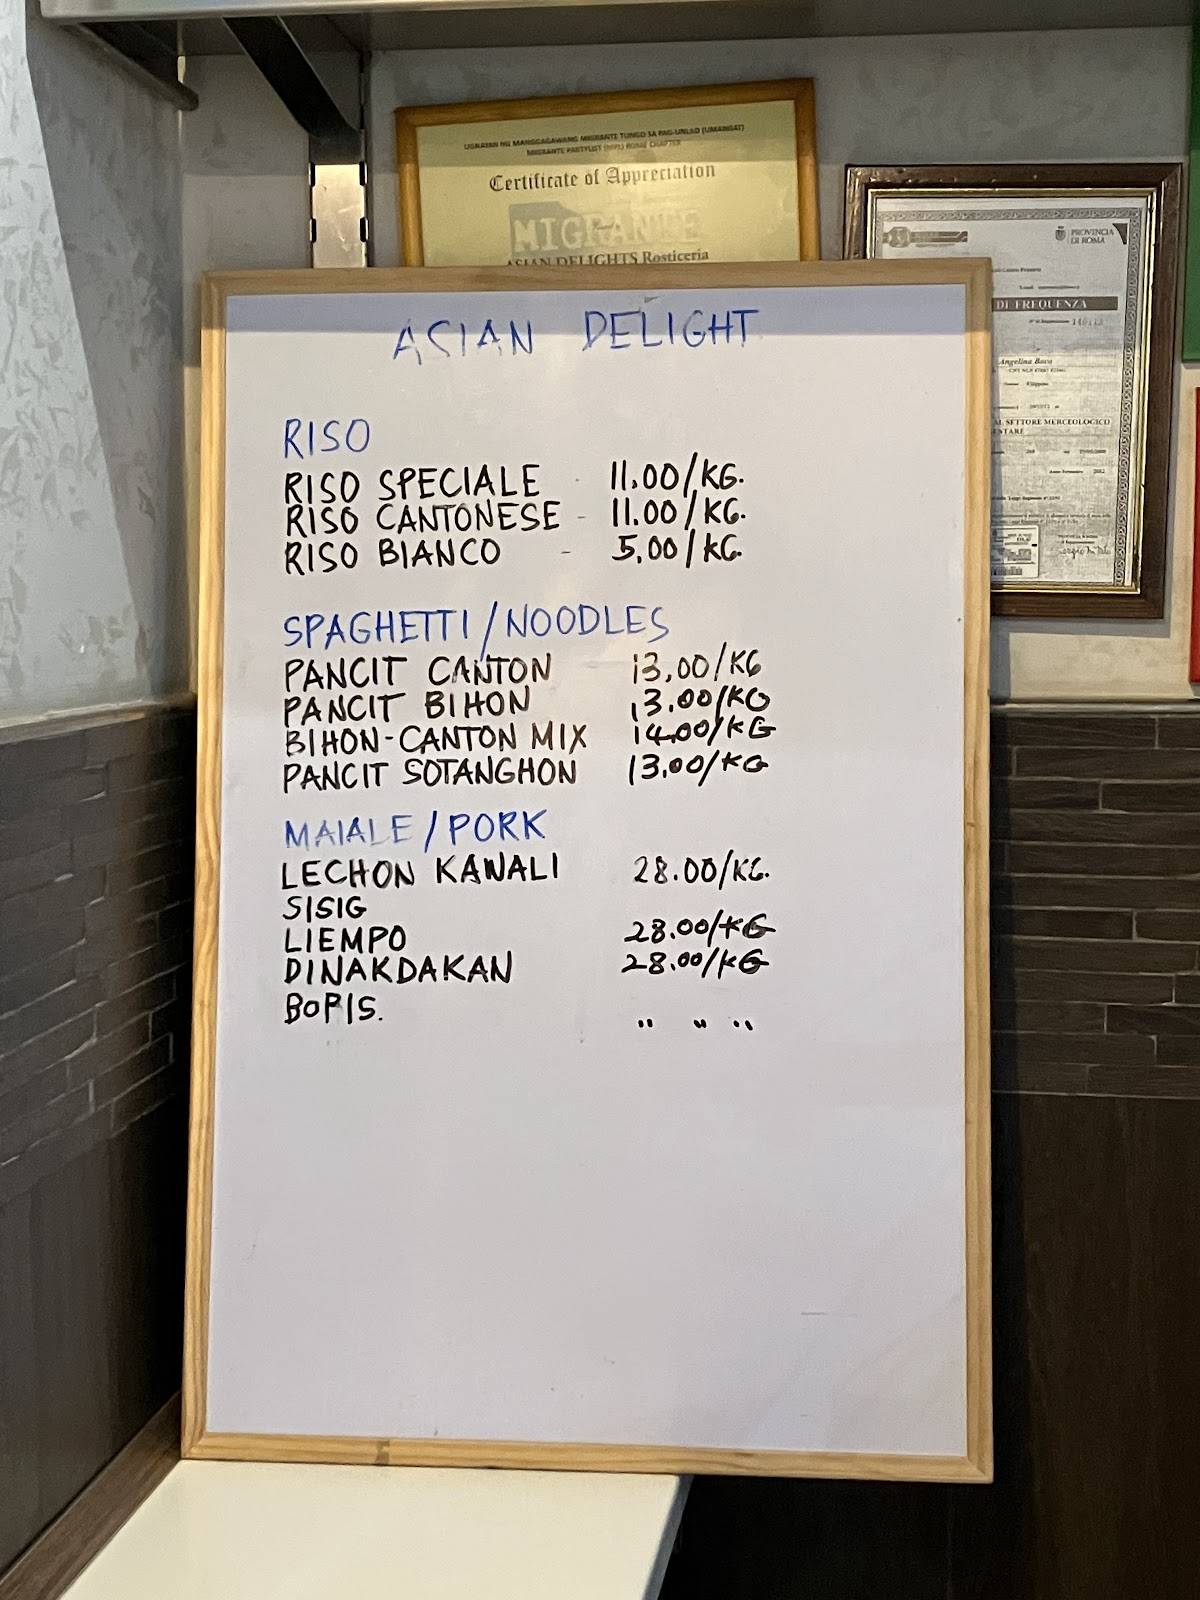 UGNAYAN NG MANGGAGAWANG MIGRANTE TUNGO SA PAG-UNLAD (UMANGAT)
MIGRANTE PARTYLIST (MPL) ROME CHAPTER
Certificate of Appreciation
MIGRANTE
ASIAN DELIGHTS Rosticeria
PROVINCIA
DI ROMA
DI FREQUENZA
Angelina
AL SETTORE MERCEOLOGICO
ASIAN DELIGHT
RISO
RISO SPECIALE - 11.00/KG.
RISO CANTONESE - 11.00/KG.
RISO BIANCO - 5,00/KG.
SPAGHETTI/NOODLES
PANCIT CANTON 13,00/KG
PANCIT BIHON 13.00/KG
BIHON-CANTON MIX 14.00/KG
PANCIT SOTANGHON 13,00/KG
MAIALE/PORK
LECHON KAWALI 28.00/KG.
SISIG
LIEMPO 28.00/KG
DINAKDAKAN 28.00/KG
BOPIS. " " "